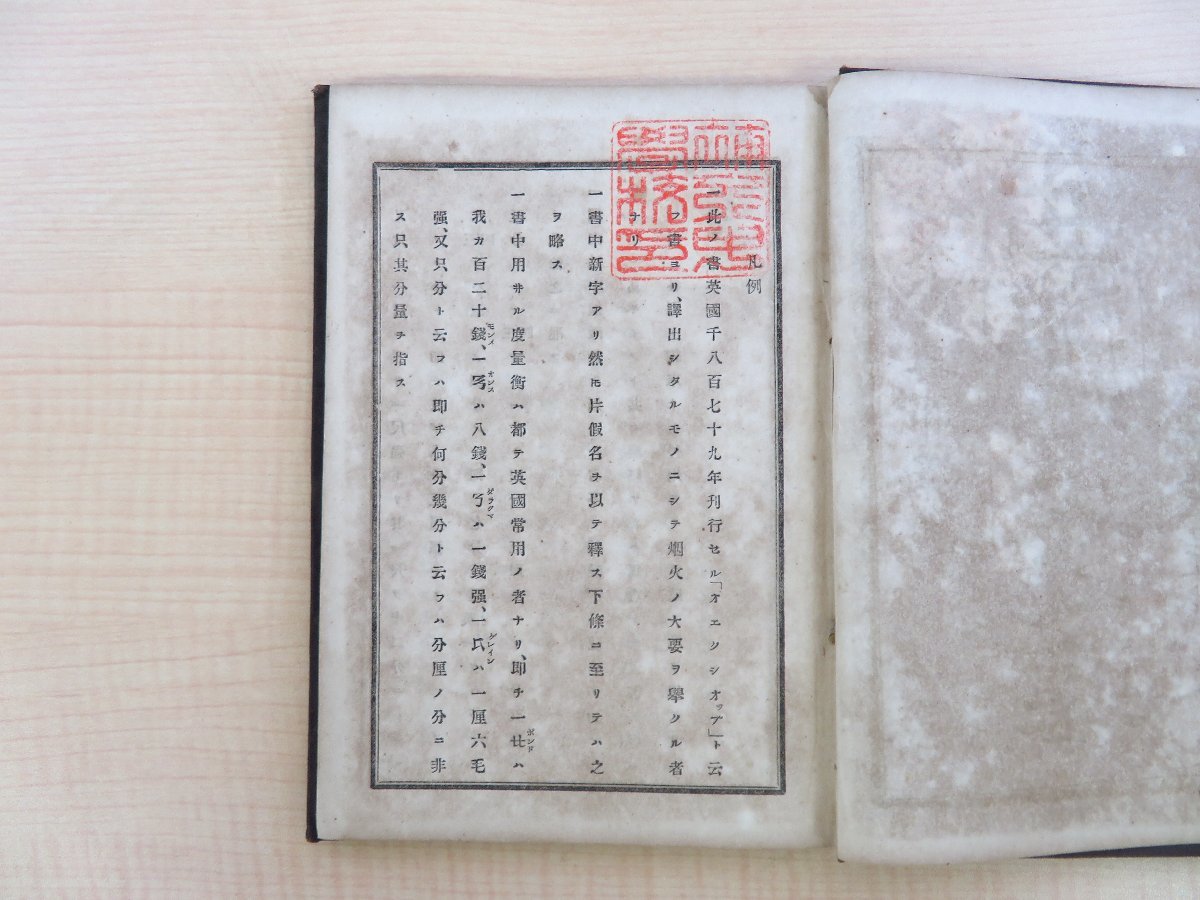 凡例
一此ノ書英國千八百七十九年刊行セル「オエクシオップ」ト云
フ書ヨリ、譯出シタルモノニシテ烟火ノ大要ヲ擧クル者
ナリ
一書中新字アリ然𪜈片假名ヲ以テ釋ス下條ニ至リテハ之
ヲ略ス
一書中用井ル度量衡ハ都テ英國常用ノ者ナリ、即チ一ポンドハ
我カ百二十錢、一オンスハ八錢、一ダラクマハ一錢强、一グレインハ一厘六毛
强、又只分ト云フハ即チ何分幾分ト云フハ分厘ノ分ニ非
ス只其分量ヲ指ス